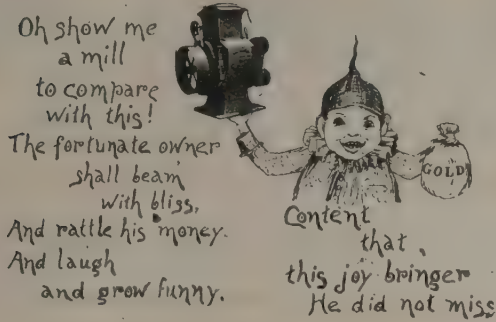 Oh show me
a mill
to compare
with this!
The fortunate owner
shall beam
with bliss,
And rattle his money.
And laugh
and grow funny.
GOLD
Content
that
this joy bringer
He did not miss